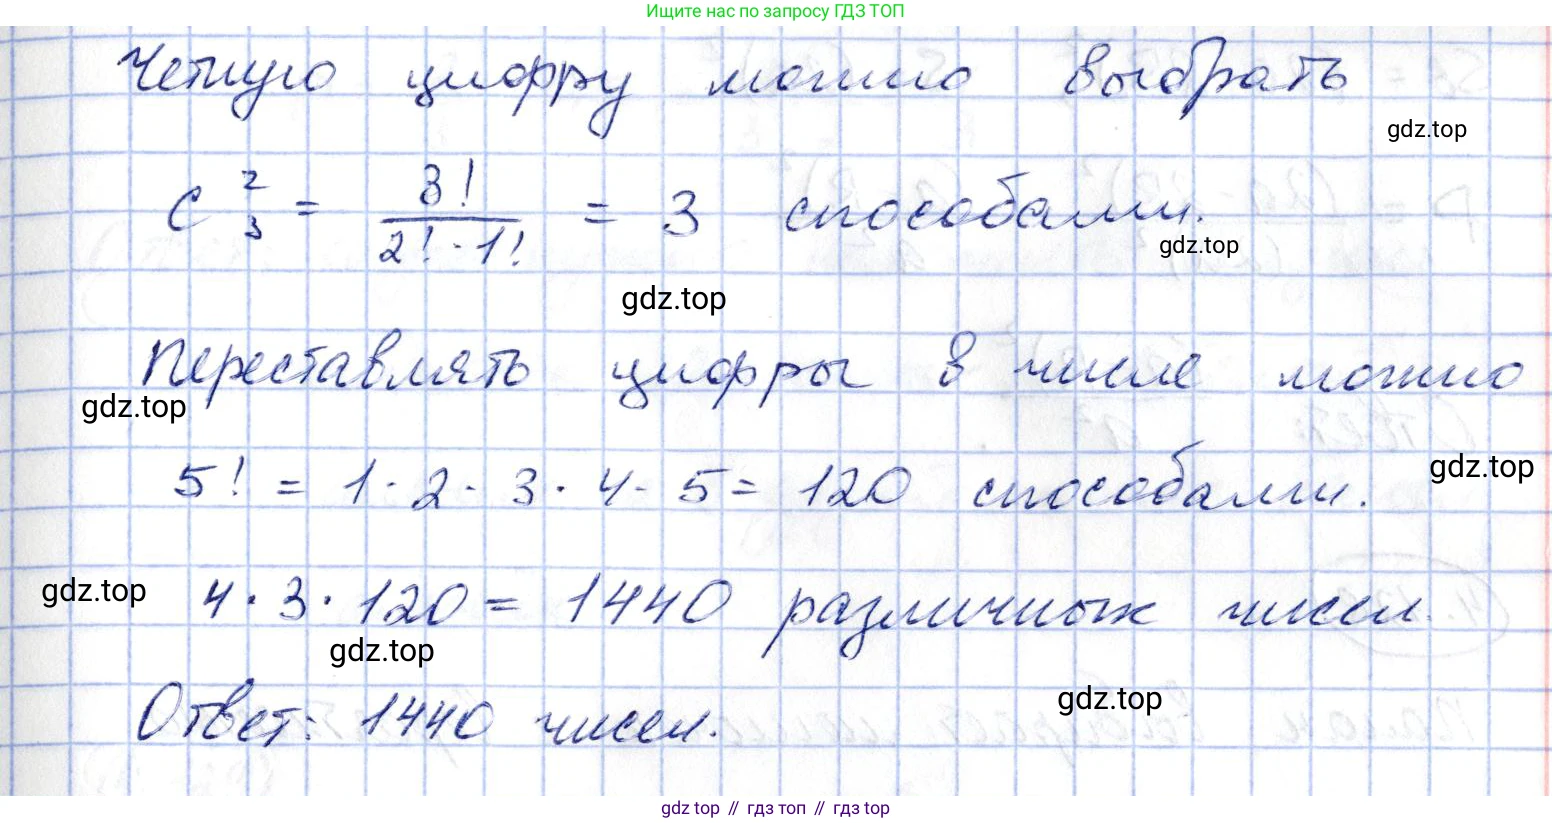 Ищите нас по запросу ГДЗ ТОП
Четную цифру можно выбрать
gdz.top
C 2 3 = 3! / 2! · 1! = 3 способами.
gdz.top
gdz.top
Переставлять цифры в числе можно
gdz.top
5! = 1 · 2 · 3 · 4 · 5 = 120 способами.
gdz.top
gdz.top
4 · 3 · 120 = 1440 различных чисел.
gdz.top
Ответ: 1440 чисел.
gdz.top
gdz top // гдз топ // гдз top